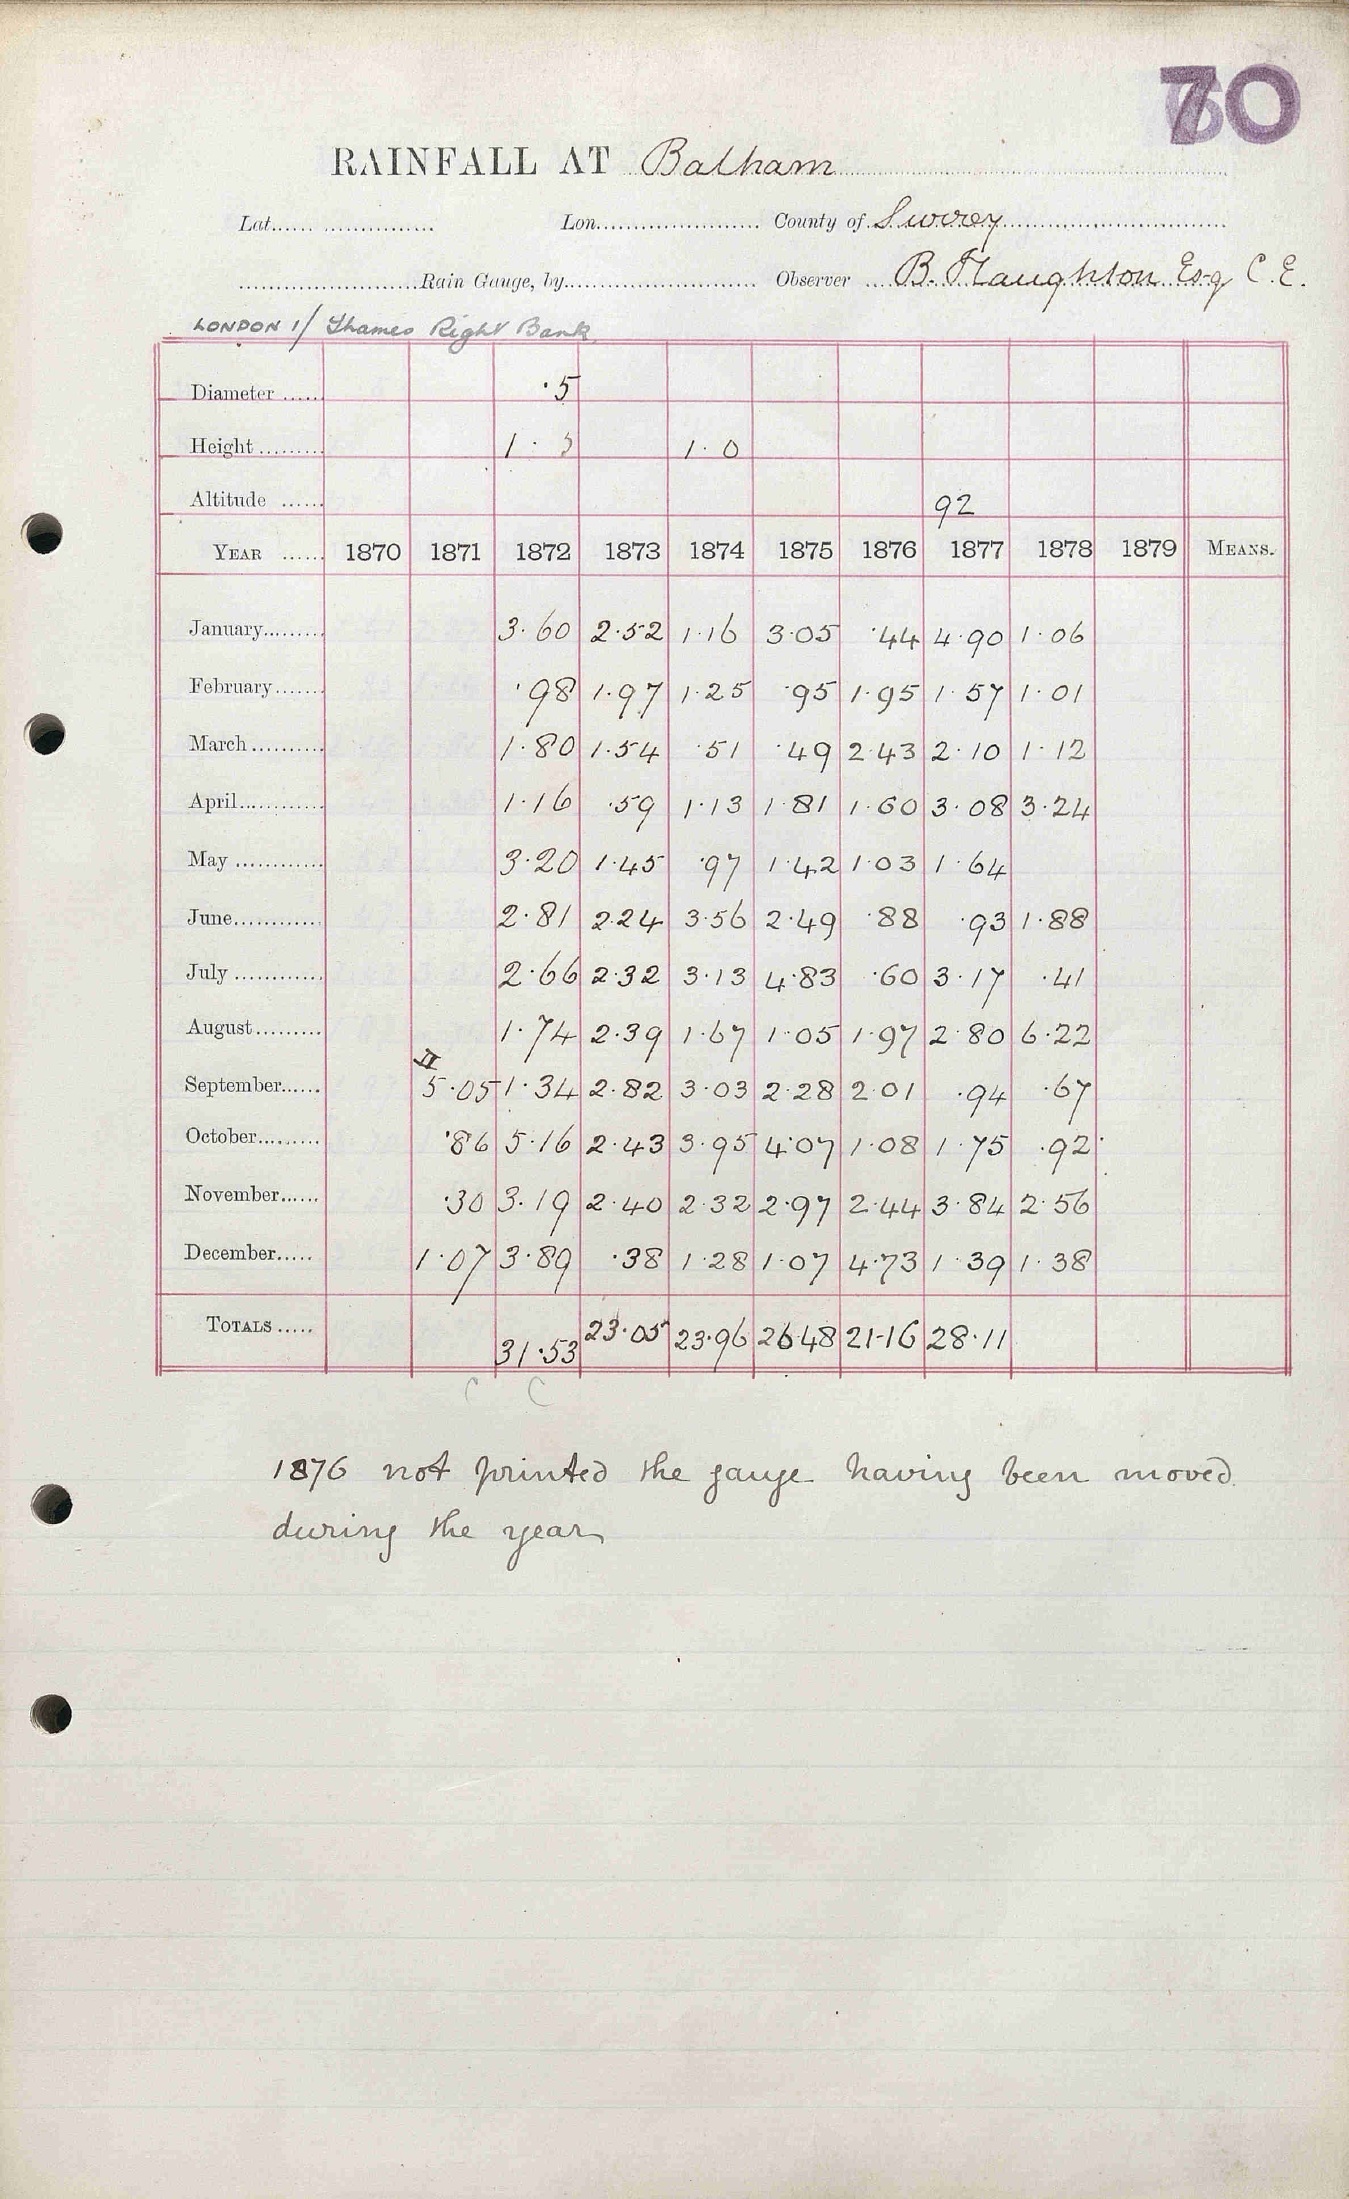 70
RAINFALL AT Balham
Lat. Lon. County of Surrey
Rain Gauge, by Observer B. Haughton Esq C.E.
LONDON 1/ Thames Right Bank
Diameter ·5
Height 1· 1·0
Altitude 92
YEAR 1870 1871 1872 1873 1874 1875 1876 1877 1878 1879 MEANS.
January 3·60 2·52 1·16 3·05 ·44 4·90 1·06
February ·98 1·97 1·25 ·95 1·95 1·57 1·01
March 1·80 1·54 ·51 ·49 2·43 2·10 1·12
April 1·16 ·59 1·13 1·81 1·60 3·08 3·24
May 3·20 1·45 ·97 1·42 1·03 1·64
June 2·81 2·24 3·56 2·49 ·88 ·93 1·88
July 2·66 2·32 3·13 4·83 ·60 3·17 ·41
August 1·74 2·39 1·67 1·05 1·97 2·80 6·22
II
September 5·05 1·34 2·82 3·03 2·28 2·01 ·94 ·67
October ·86 5·16 2·43 3·95 4·07 1·08 1·75 ·92
November ·30 3·19 2·40 2·32 2·97 2·44 3·84 2·56
December 1·07 3·89 ·38 1·28 1·07 4·73 1·39 1·38
TOTALS 31·53 23·05 23·96 26·48 21·16 28·11
C C
1876 not printed the gauge having been moved
during the year